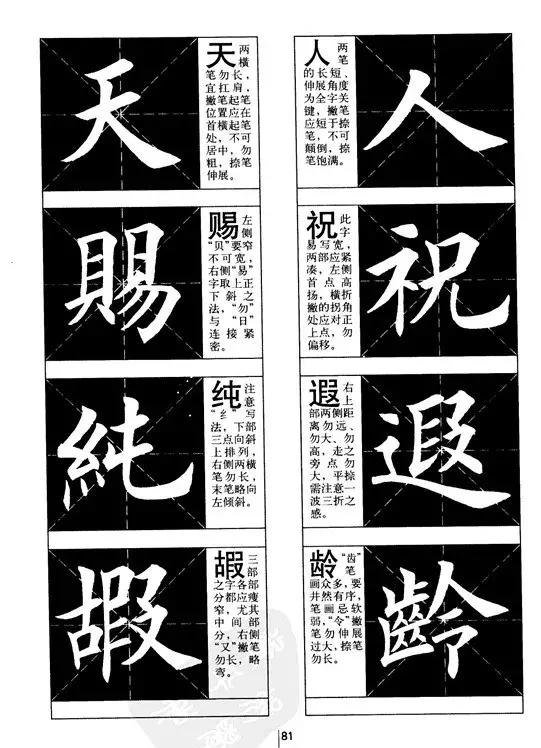 天
天 两
横
笔勿长，
宜扛肩，
撇笔起笔
位置应在
首横起笔
处，不可
居中，勿
粗，捺笔
伸展。
賜
赐 左
侧
“贝”要窄
不可宽，
右侧“易”
字取上正
下斜之
法，“勿”
与“日”
连接紧
密。
純
纯 注
意
“纟”写
法，下部
三点向斜
上排列，
右侧两横
笔勿长，
末笔略向
左倾斜。
嘏
嘏 三
部
之字各部
分都应瘦
窄，尤其
中间部
分，右侧
“又”撇笔
勿长，略
弯。
人
人 两
笔
的长短、
伸展角度
为全字关
键，撇笔
应短于捺
笔，不可
颠倒，捺
笔饱满。
祝
祝 此
字
易写宽，
两部应紧
凑，左侧
首点高
扬，横折
撇的拐角
处应对正
上点，勿
偏移。
遐
遐 右
上
部两侧距
离勿远、
勿大、勿
高，走之
旁点勿
大，平捺
需注意一
波三折之
感。
齡
龄 “齿”
笔
画众多，要
井然有序，
笔画忌软
弱，“令”撇
笔勿伸展
过大，捺笔
勿长。
81